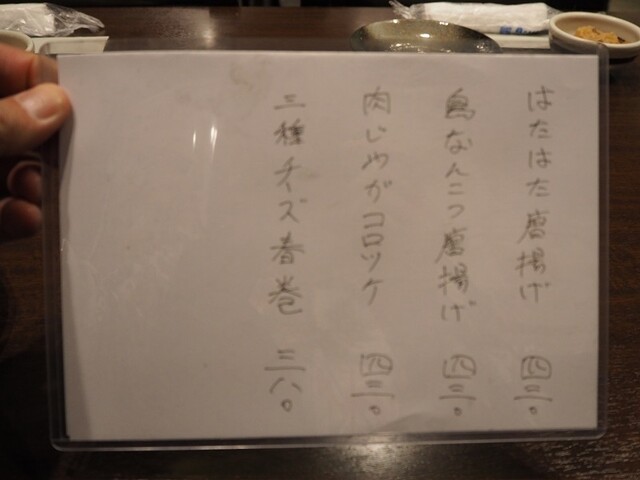 はたはた唐揚げ 四三〇
鳥なんこつ唐揚げ 四三〇
肉じゃがコロッケ 四三〇
三種チーズ春巻 三八〇